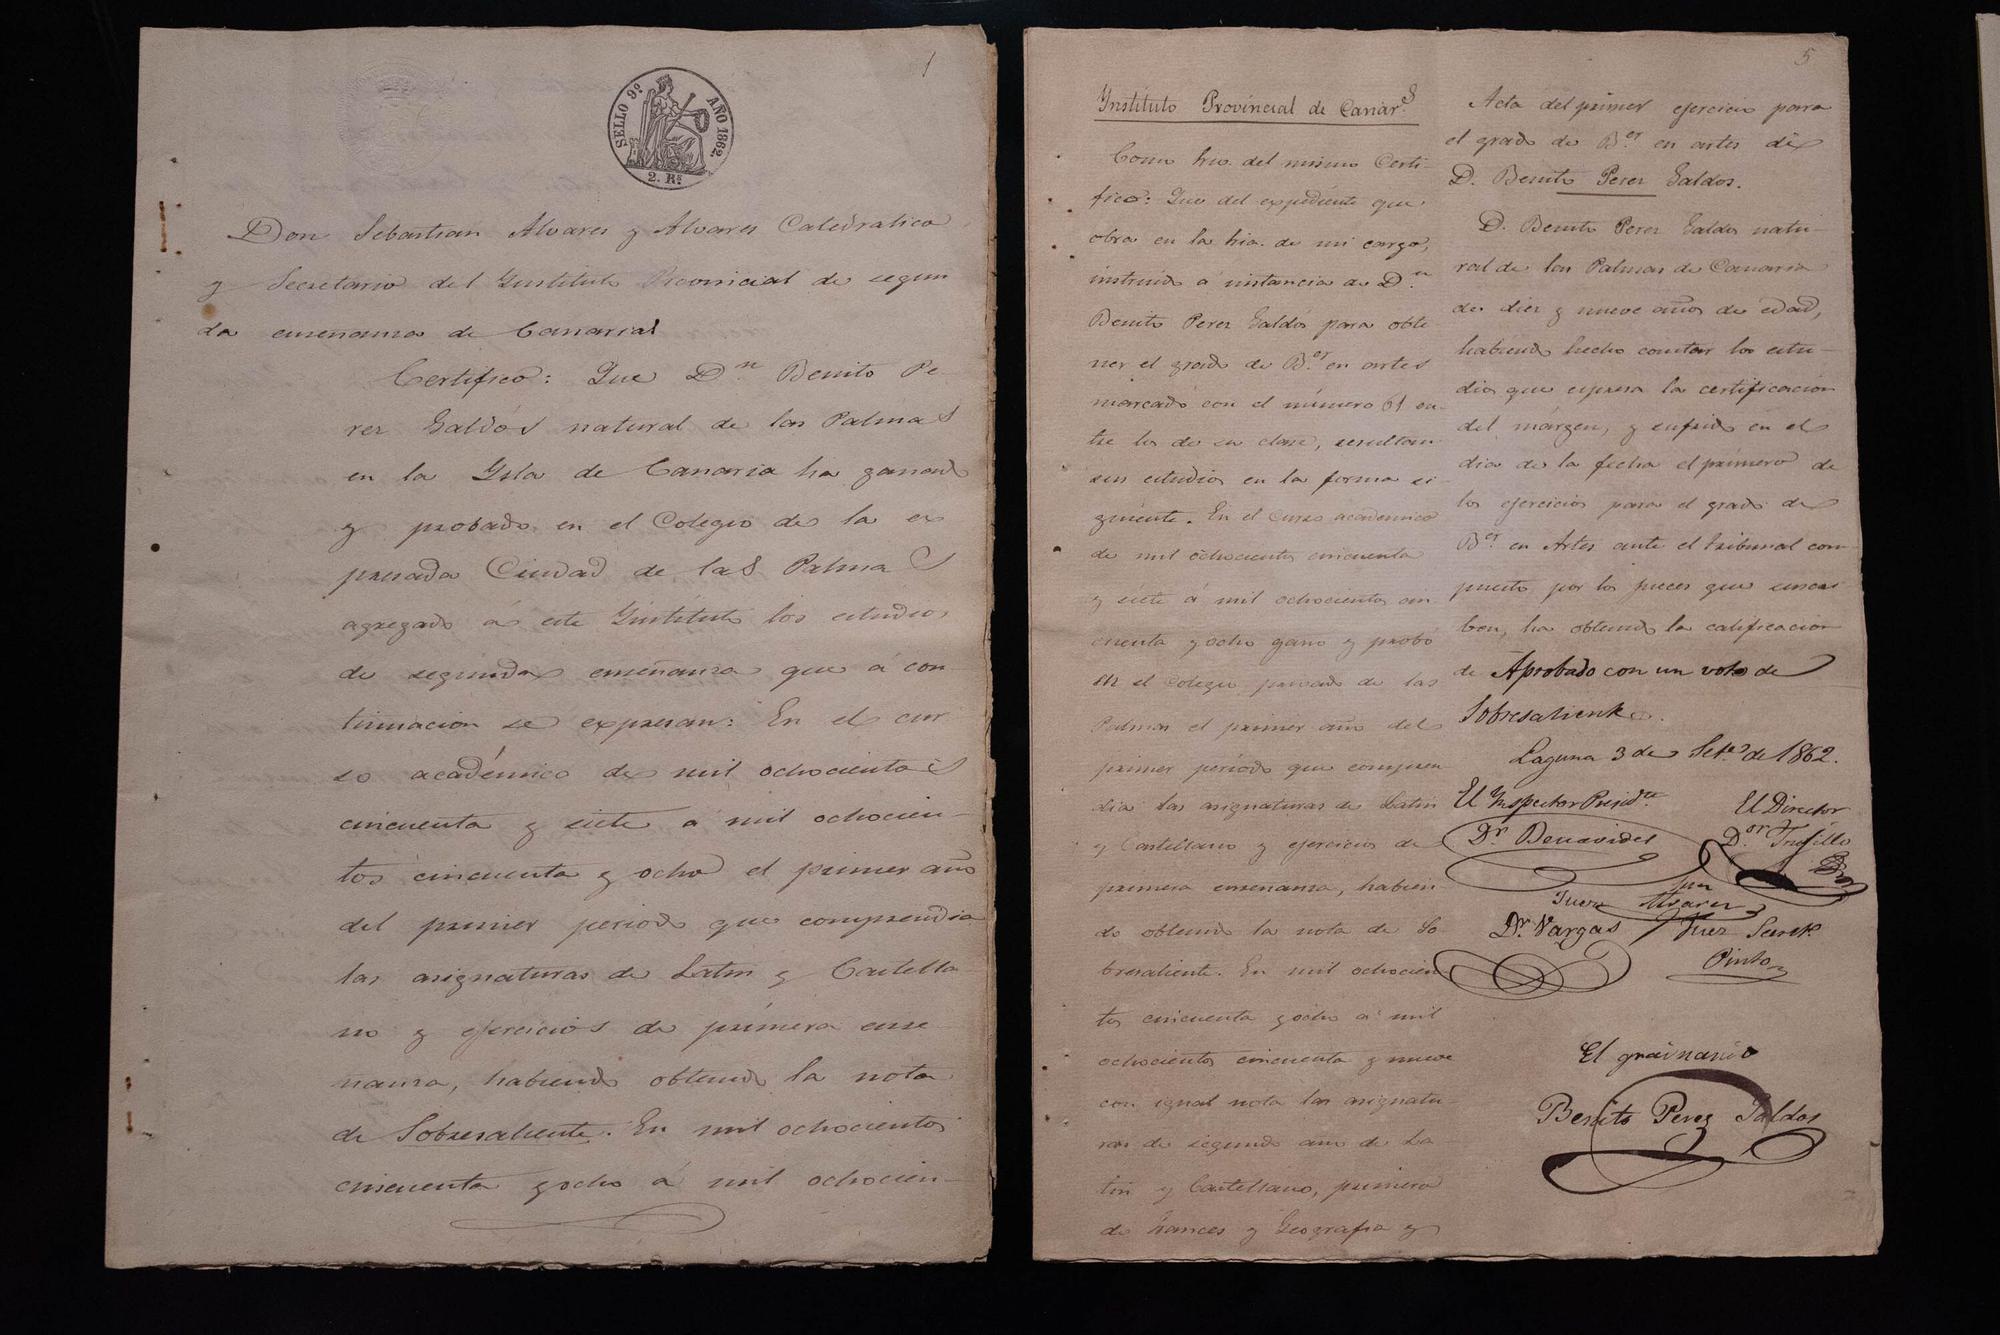 1
SELLO 9º AÑO 1862.
2. Rˢ
Don Sebastian Alvares y Alvares Catedratico
y Secretario del Ynstituto Provincial de segun
da enseñanza de Canarias
Certifico: Que Dⁿ Benito Pe-
rez Galdós natural de las Palmas
en la Ysla de Canaria ha ganado
y probado en el Colegio de la ex
presada Ciudad de las Palmas
agregado á este Ynstituto los estudios
de segunda enseñanza que á con
tinuacion se expresan: En el cur
so académico de mil ochocientos
cincuenta y siete á mil ochocien-
tos cincuenta y ocho el primer año
del primer periodo que comprendia
las asignaturas de Latin y Castella
no y ejercicios de primera ense
ñanza, habiendo obtenido la nota
de Sobresaliente. En mil ochocientos
cincuenta y ocho á mil ochocien-
5
Ynstituto Provincial de Canarˢ
Como Srio. del mismo Certi-
fico: Que del expediente que
obra en la Sria. de mi cargo,
instruido á instancia de Dⁿ
Benito Perez Galdós para obte
ner el grado de Bᵉʳ en artes
marcado con el número 61 en-
tre los de su clase, resultan
sus estudios en la forma si-
guiente. En el curso académico
de mil ochocientos cincuenta
y siete á mil ochocientos cin
cuenta y ocho ganó y probó
en el Colegio privado de las
Palmas el primer año del
primer período que compren
dia las asignaturas de Latin
y Castellano y ejercicios de
primera enseñanza, habien-
do obtenido la nota de So
bresaliente. En mil ochocien
tos cincuenta y ocho á mil
ochocientos cincuenta y nueve
con igual nota las asignatu-
ras de segundo año de La-
tin y Castellano, primero
de frances y Geografia y
Acta del primer ejercicio para
el grado de Bᵉʳ en artes de
D. Benito Perez Galdos.
D. Benito Perez Galdos natu-
ral de las Palmas de Canaria
de diez y nueve años de edad,
habiendo hecho constar los estu-
dios que expresa la certificación
del márgen, y sufrido en el
dia de la fecha el primero de
los ejercicios para el grado de
Bᵉʳ en Artes ante el tribunal com-
puesto por los jueces que suscri
ben, ha obtenido la calificacion
de Aprobado con un voto de
Sobresaliente.
Laguna 3 de Setᵉ de 1862.
El Inspector Presidᵗᵉ
Dʳ Benavides
El Director
Dᵒʳ Trujillo
Juez
Alvarez
Dʳ Vargas
Juez Secretº
Pinto
El graduando
Benito Perez Galdos